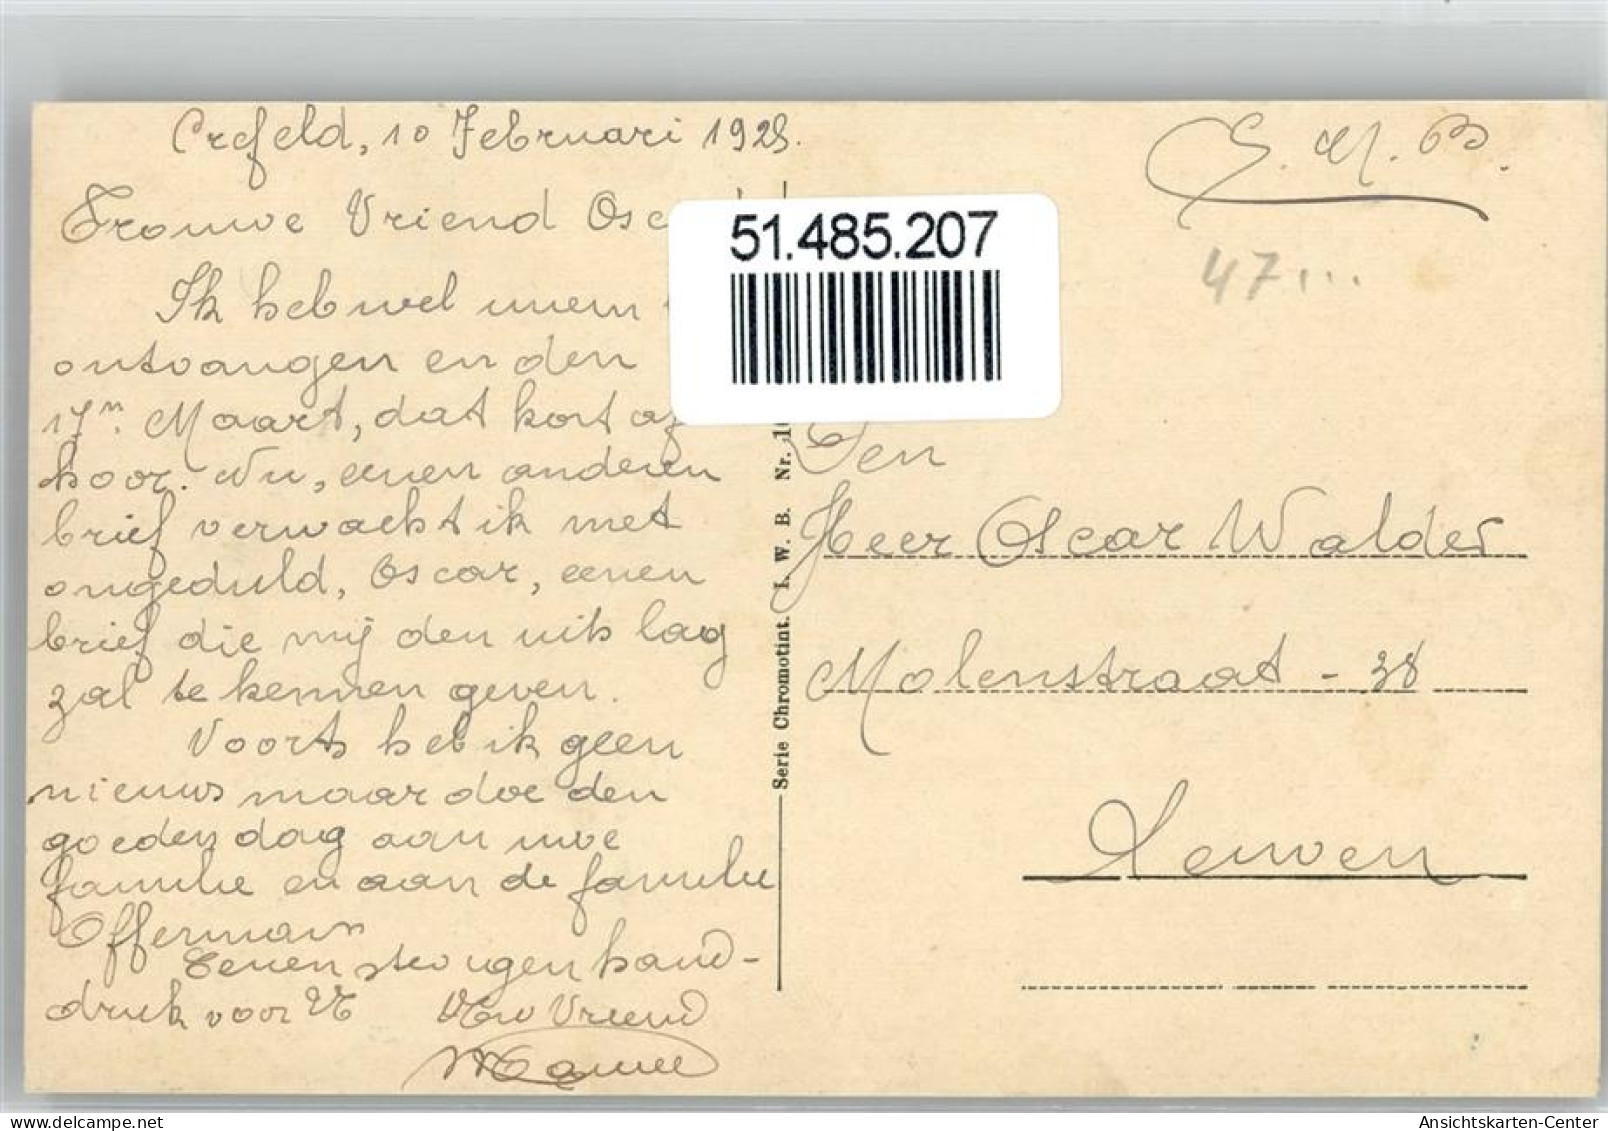 Crefeld, 10 Februari 1925.
Trouwe Vriend
Ik heb wel uwen
ontvangen en den
17n. Maart, dat kort af
hoor. Nu, eenen anderen
brief verwacht ik met
ongeduld, Oscar, eenen
brief die mij den uits lag
zal te kennen geven.
Voorts heb ik geen
nieuws maar doe den
goeden dag aan uwe
familie en aan de familie
Offermans
Eenen stevigen hand-
druk voor U
Uw Vriend
51.485.207
Serie Chromotint. I. W. B. Nr.
S. M. B.
47...
Den
Heer Oscar Walder
Molenstraat - 38
Leuven
Ansichtskarten-Center